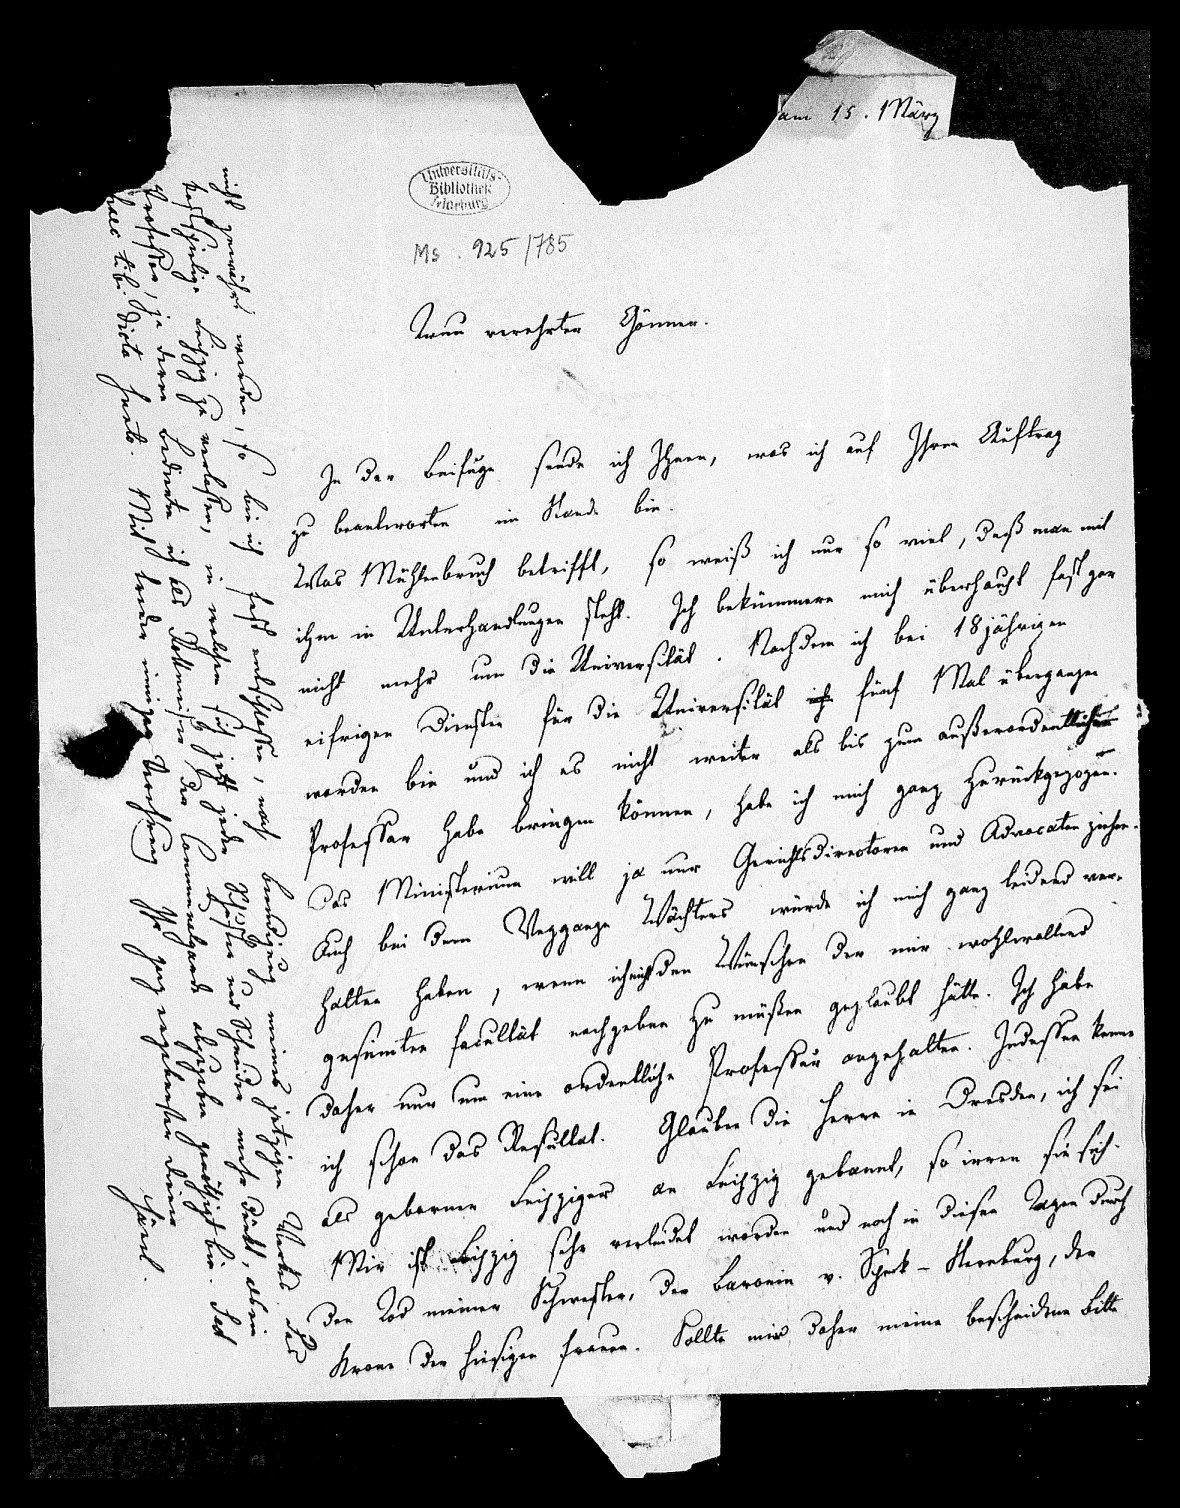 am 15. März
Universitäts-
Bibliothek
Marburg
Ms. 925/785
Treu verehrter Gönner.
In der Beifuge sende ich Ihnen, was ich auf Ihren Auftrag
zu beantworten im Stande bin.
Was Mühlenbruch betrifft, so weiß ich nur so viel, daß man mit
ihm in Unterhandlungen steht. Ich bekümmere mich überhaupt fast gar
nicht mehr um die Universität. Nachdem ich bei 18jährigen
eifrigen Diensten für die Universität ich fünf Mal übergangen
worden bin und ich es nicht weiter als bis zum außerordentlichen
Professor habe bringen können, habe ich mich ganz zurückgezogen.
Das Ministerium will ja nur Gerichtsdirectoren und Advocaten ziehen.
Auch bei dem Weggange Wächters würde ich mich ganz leidend ver-
halten haben, wenn ich nicht den Wünschen der mir wohlwollend
gesinnten Facultät nachgeben zu müßen geglaubt hätte. Ich habe
daher nur um eine ordentliche Professur angehalten. Indessen kenne
ich schon das Resultat. Glauben die Herren in Dresden, ich sei
als geborner Leipziger an Leipzig gebannt, so irren sie sich.
Mir ist Leipzig sehr verleidet worden und noch in diesen Tagen durch
den Tod meiner Schwester, der Baronin v. Speck-Sternburg, der
Krone der hiesigen Frauen. Sollte mir daher meine bescheidene Bitte
nicht gewährt werden, so bin ich fest entschlossen, nach Beendigung meines jetzigen Werkes das
kostspielige Leipzig zu verlassen, in welchem sich jetzt jeder Schuster und Schneider mehr dünkt, als ein
Professor, ja deren Bedienten ich als Rottmeister der Communalgarde abzugeben genöthigt bin. Sed
haec tibi dicta sunto. Mit treuer inniger Verehrung Ihr ganz ergebenster Diener
Hänel.